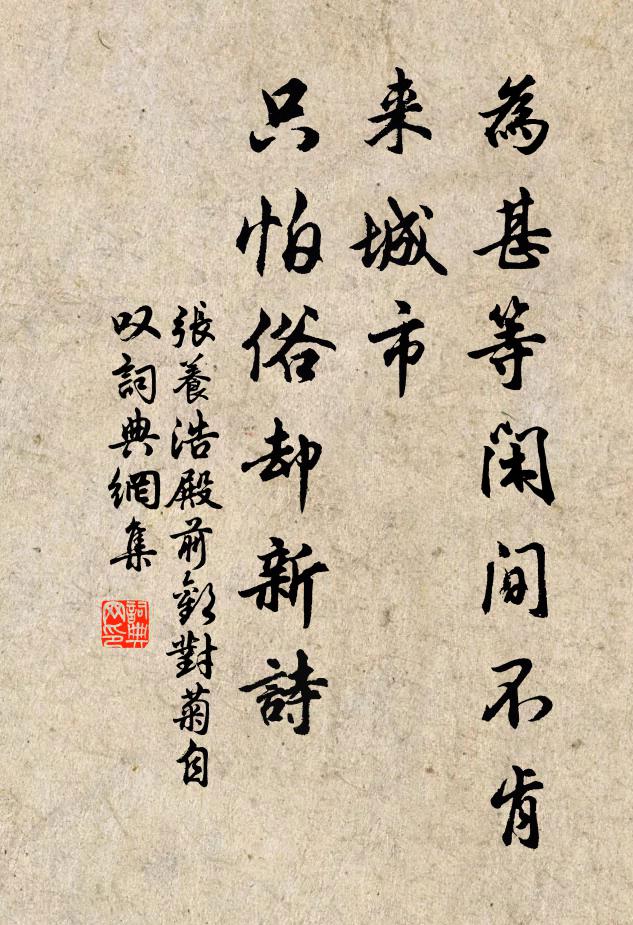 為甚等閑間不肯
来城市
只怕俗却新詩
張養浩殿前歡對菊自
叹詞典網集
詞典
网印